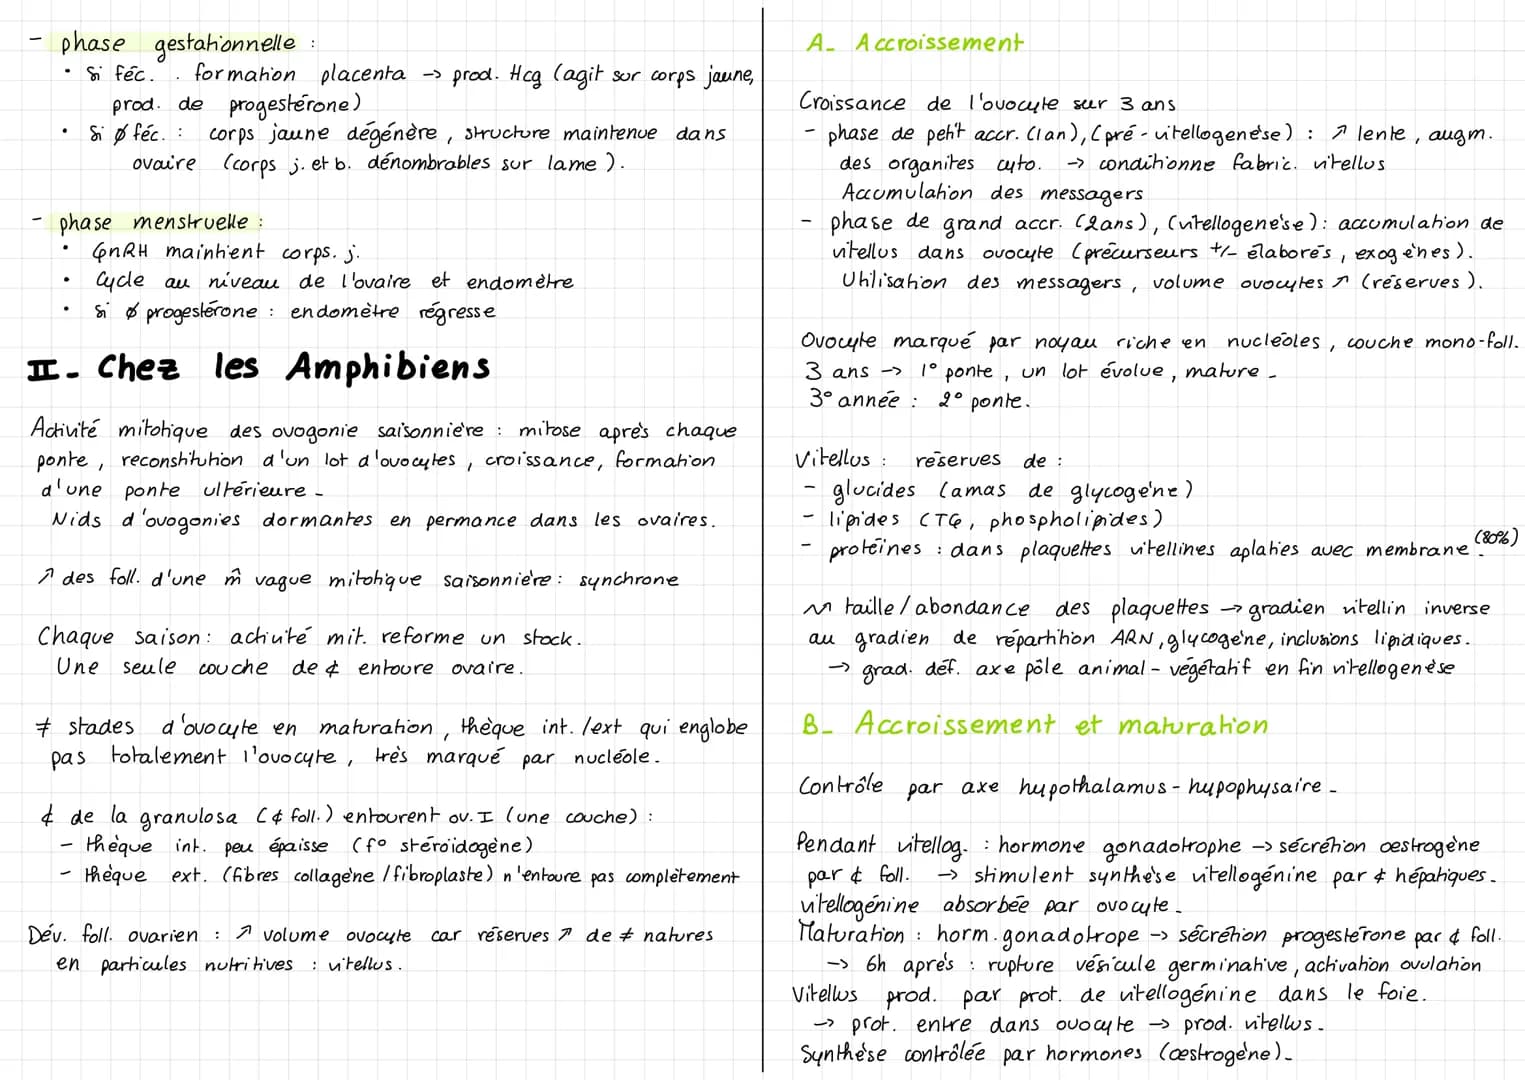 - phase gestationnelle :
• Si féc. . formation placenta → prod. Hcg (agit sur corps jaune,
prod. de progestérone)
• Si ∅ féc. : corps jaune dégénère, structure maintenue dans
ovaire (corps j. et b. dénombrables sur lame).
- phase menstruelle :
• GnRH maintient corps. j.
• Cycle au niveau de l'ovaire et endomètre
• si ∅ progestérone : endomètre régresse
II- Chez les Amphibiens
Activité mitotique des ovogonie saisonnière : mitose après chaque
ponte, reconstitution d'un lot d'ovocytes, croissance, formation
d'une ponte ultérieure -
Nids d'ovogonies dormantes en permance dans les ovaires.
↗ des foll. d'une m̂ vague mitotique saisonnière : synchrone
Chaque saison : activité mit. reforme un stock.
Une seule couche de ¢ entoure ovaire.
≠ stades d'ovocyte en maturation, thèque int. /ext qui englobe
pas totalement l'ovocyte, très marqué par nucléole.
¢ de la granulosa (¢ foll.) entourent ov. I (une couche) :
- thèque int. peu épaisse (f° stéroïdogène)
- thèque ext. (fibres collagène / fibroplaste) n'entoure pas complètement
Dév. foll. ovarien : ↗ volume ovocyte car réserves ↗ de ≠ natures
en particules nutritives : vitellus.
A- Accroissement
Croissance de l'ovocyte sur 3 ans
- phase de petit accr. (1an), (pré-vitellogenèse) : ↗ lente, augm.
des organites cyto. → conditionne fabric. vitellus
Accumulation des messagers
- phase de grand accr. (2ans), (vitellogenèse) : accumulation de
vitellus dans ovocyte (précurseurs +/- élaborés, exogènes).
Utilisation des messagers, volume ovocytes ↗ (réserves).
Ovocyte marqué par noyau riche en nucléoles, couche mono-foll.
3 ans → 1° ponte, un lot évolue, mature -
3° année : 2° ponte.
Vitellus : réserves de :
- glucides (amas de glycogène)
- lipides (TG, phospholipides)
- protéines : dans plaquettes vitellines aplaties avec membrane. (80%)
taille / abondance des plaquettes → gradien vitellin inverse
au gradien de répartition ARN, glycogène, inclusions lipidiques.
→ grad. déf. axe pôle animal - végétatif en fin vitellogenèse
B- Accroissement et maturation
Contrôle par axe hypothalamus - hypophysaire -
Pendant vitellog. : hormone gonadotrophe → sécrétion oestrogène
par ¢ foll. → stimulent synthèse vitellogénine par ¢ hépatiques -
vitellogénine absorbée par ovocyte -
Maturation : horm. gonadotrope → sécrétion progestérone par ¢ foll.
→ 6h après : rupture vésicule germinative, activation ovulation
Vitellus prod. par prot. de vitellogénine dans le foie.
→ prot. entre dans ovocyte → prod. vitellus -
Synthèse contrôlée par hormones (œstrogène) -